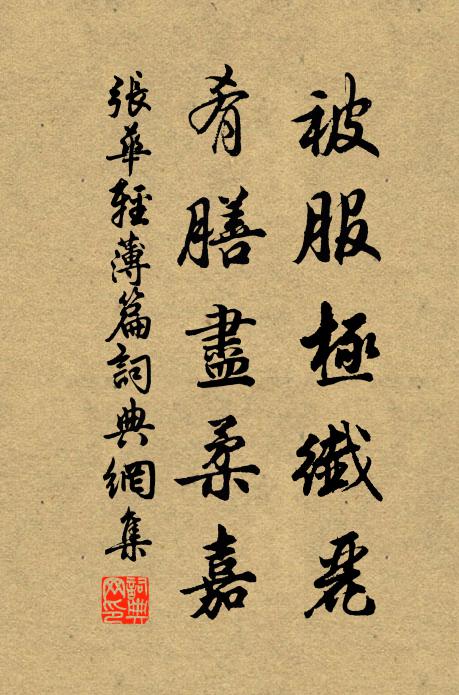 被服極纖麗
肴膳盡柔嘉
張華輕薄篇詞典網集
詞典網印